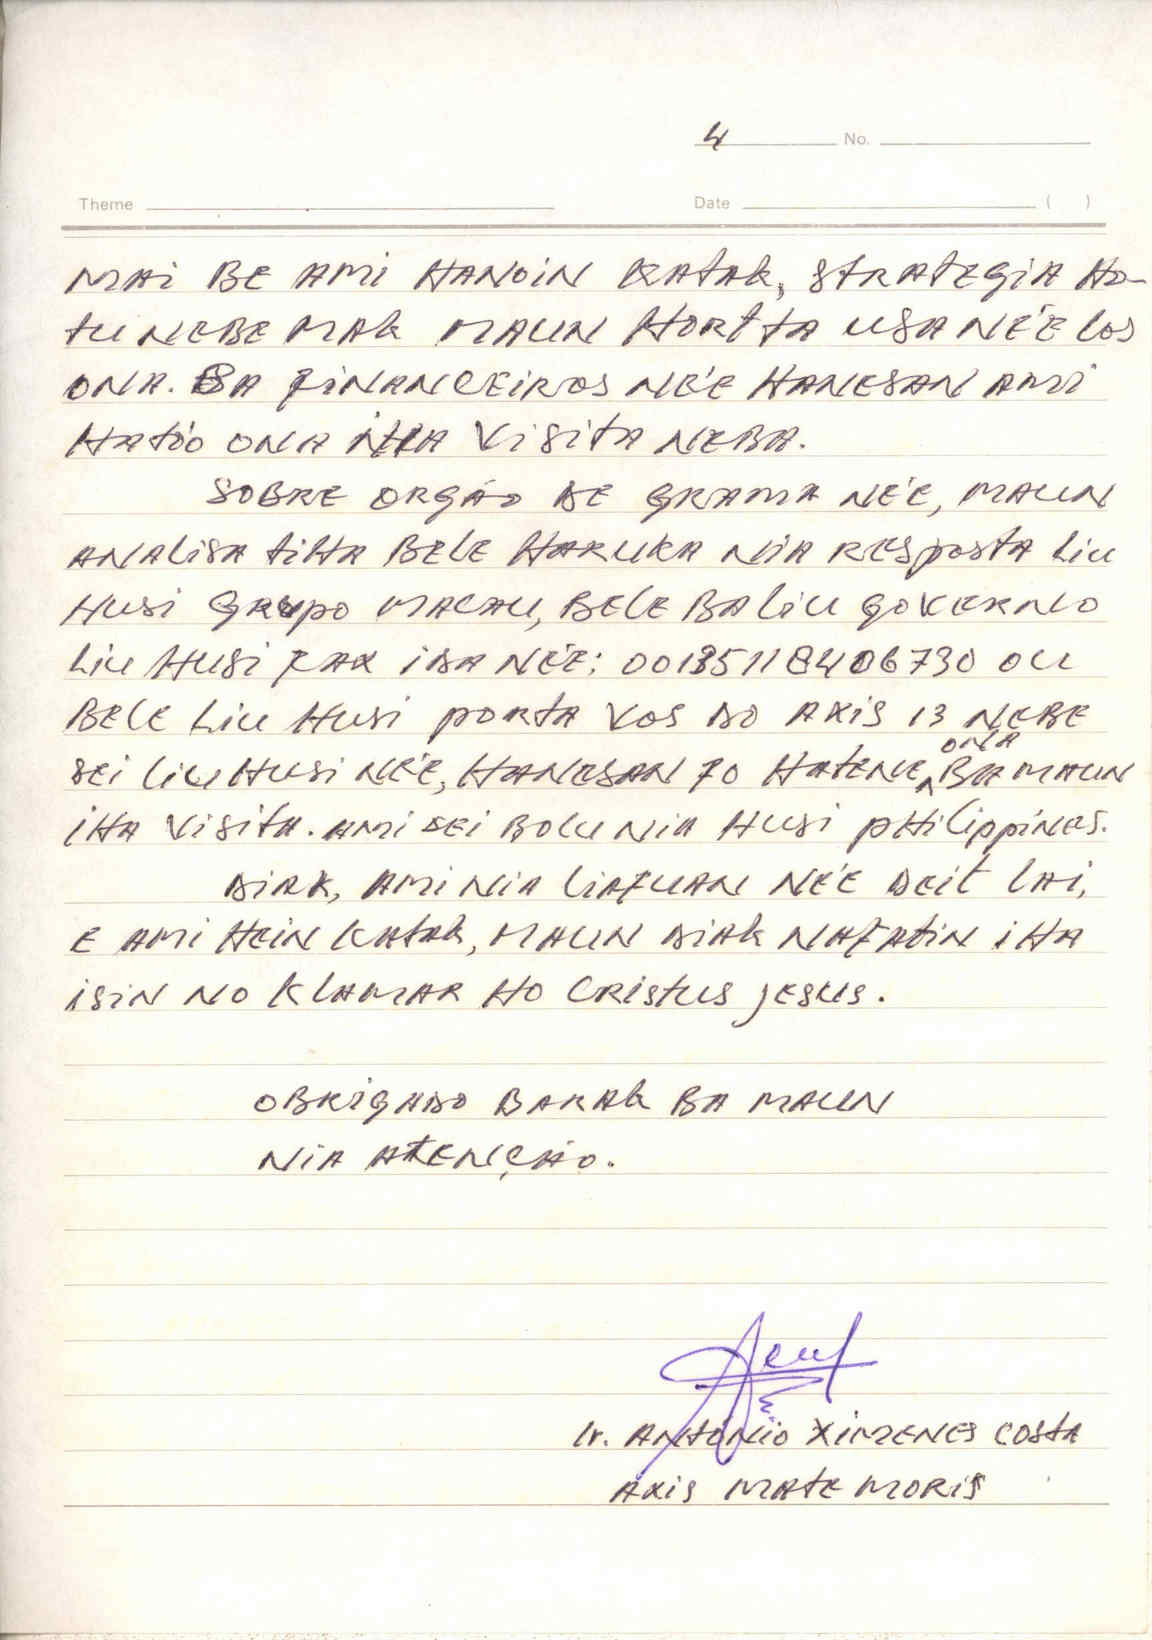 4 No.
Theme Date ( )
MAI BE AMI HANOIN KATAK, STRATEGIA HO-
TU NEBE MAK MAUN HORTTA USA NE'E LOS
ONA. BA FINANCEIROS NE'E HANESAN AMI
HATÓO ONA IHA VISITA NEBA.
SOBRE ORGÃO DE GRAMA NE'E, MAUN
ANALISA TIHA BELE HARUKA NIA RESPOSTA LIU
HUSI GRUPO MACAU, BELE BA LIU GOVERNO
LIU HUSI FAX IDA NE'E: 00135118406730 OU
BELE LIU HUSI PORTA VOS DO AXIS 13 NEBE
ONA
SEI LIU HUSI NE'E, HANESAN FO HATENE BA MAUN
IHA VISITA. AMI SEI BOLU NIA HUSI PHILIPPINES.
DIAK, AMI NIA LIAFUAN NE'E DEIT LAI,
E AMI HEIN KATAK, MAUN DIAK NAFATIN IHA
ISIN NO KLAMAR HO CRISTUS JESUS.
OBRIGADO BARAK BA MAUN
NIA ATENÇÃO.
Ir. ANTÓNIO XIMENES COSTA
AXIS MATE MORIS